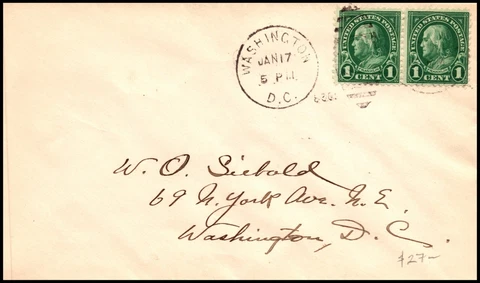 UNITED STATES POSTAGE UNITED STATES POSTAGE
1 CENT 1 1 CENT 1
WASHINGTON
JAN 17
5 PM
D.C.
W. O. Siebold
69 N. York Ave. N. E.
Washington, D. C.
$27-